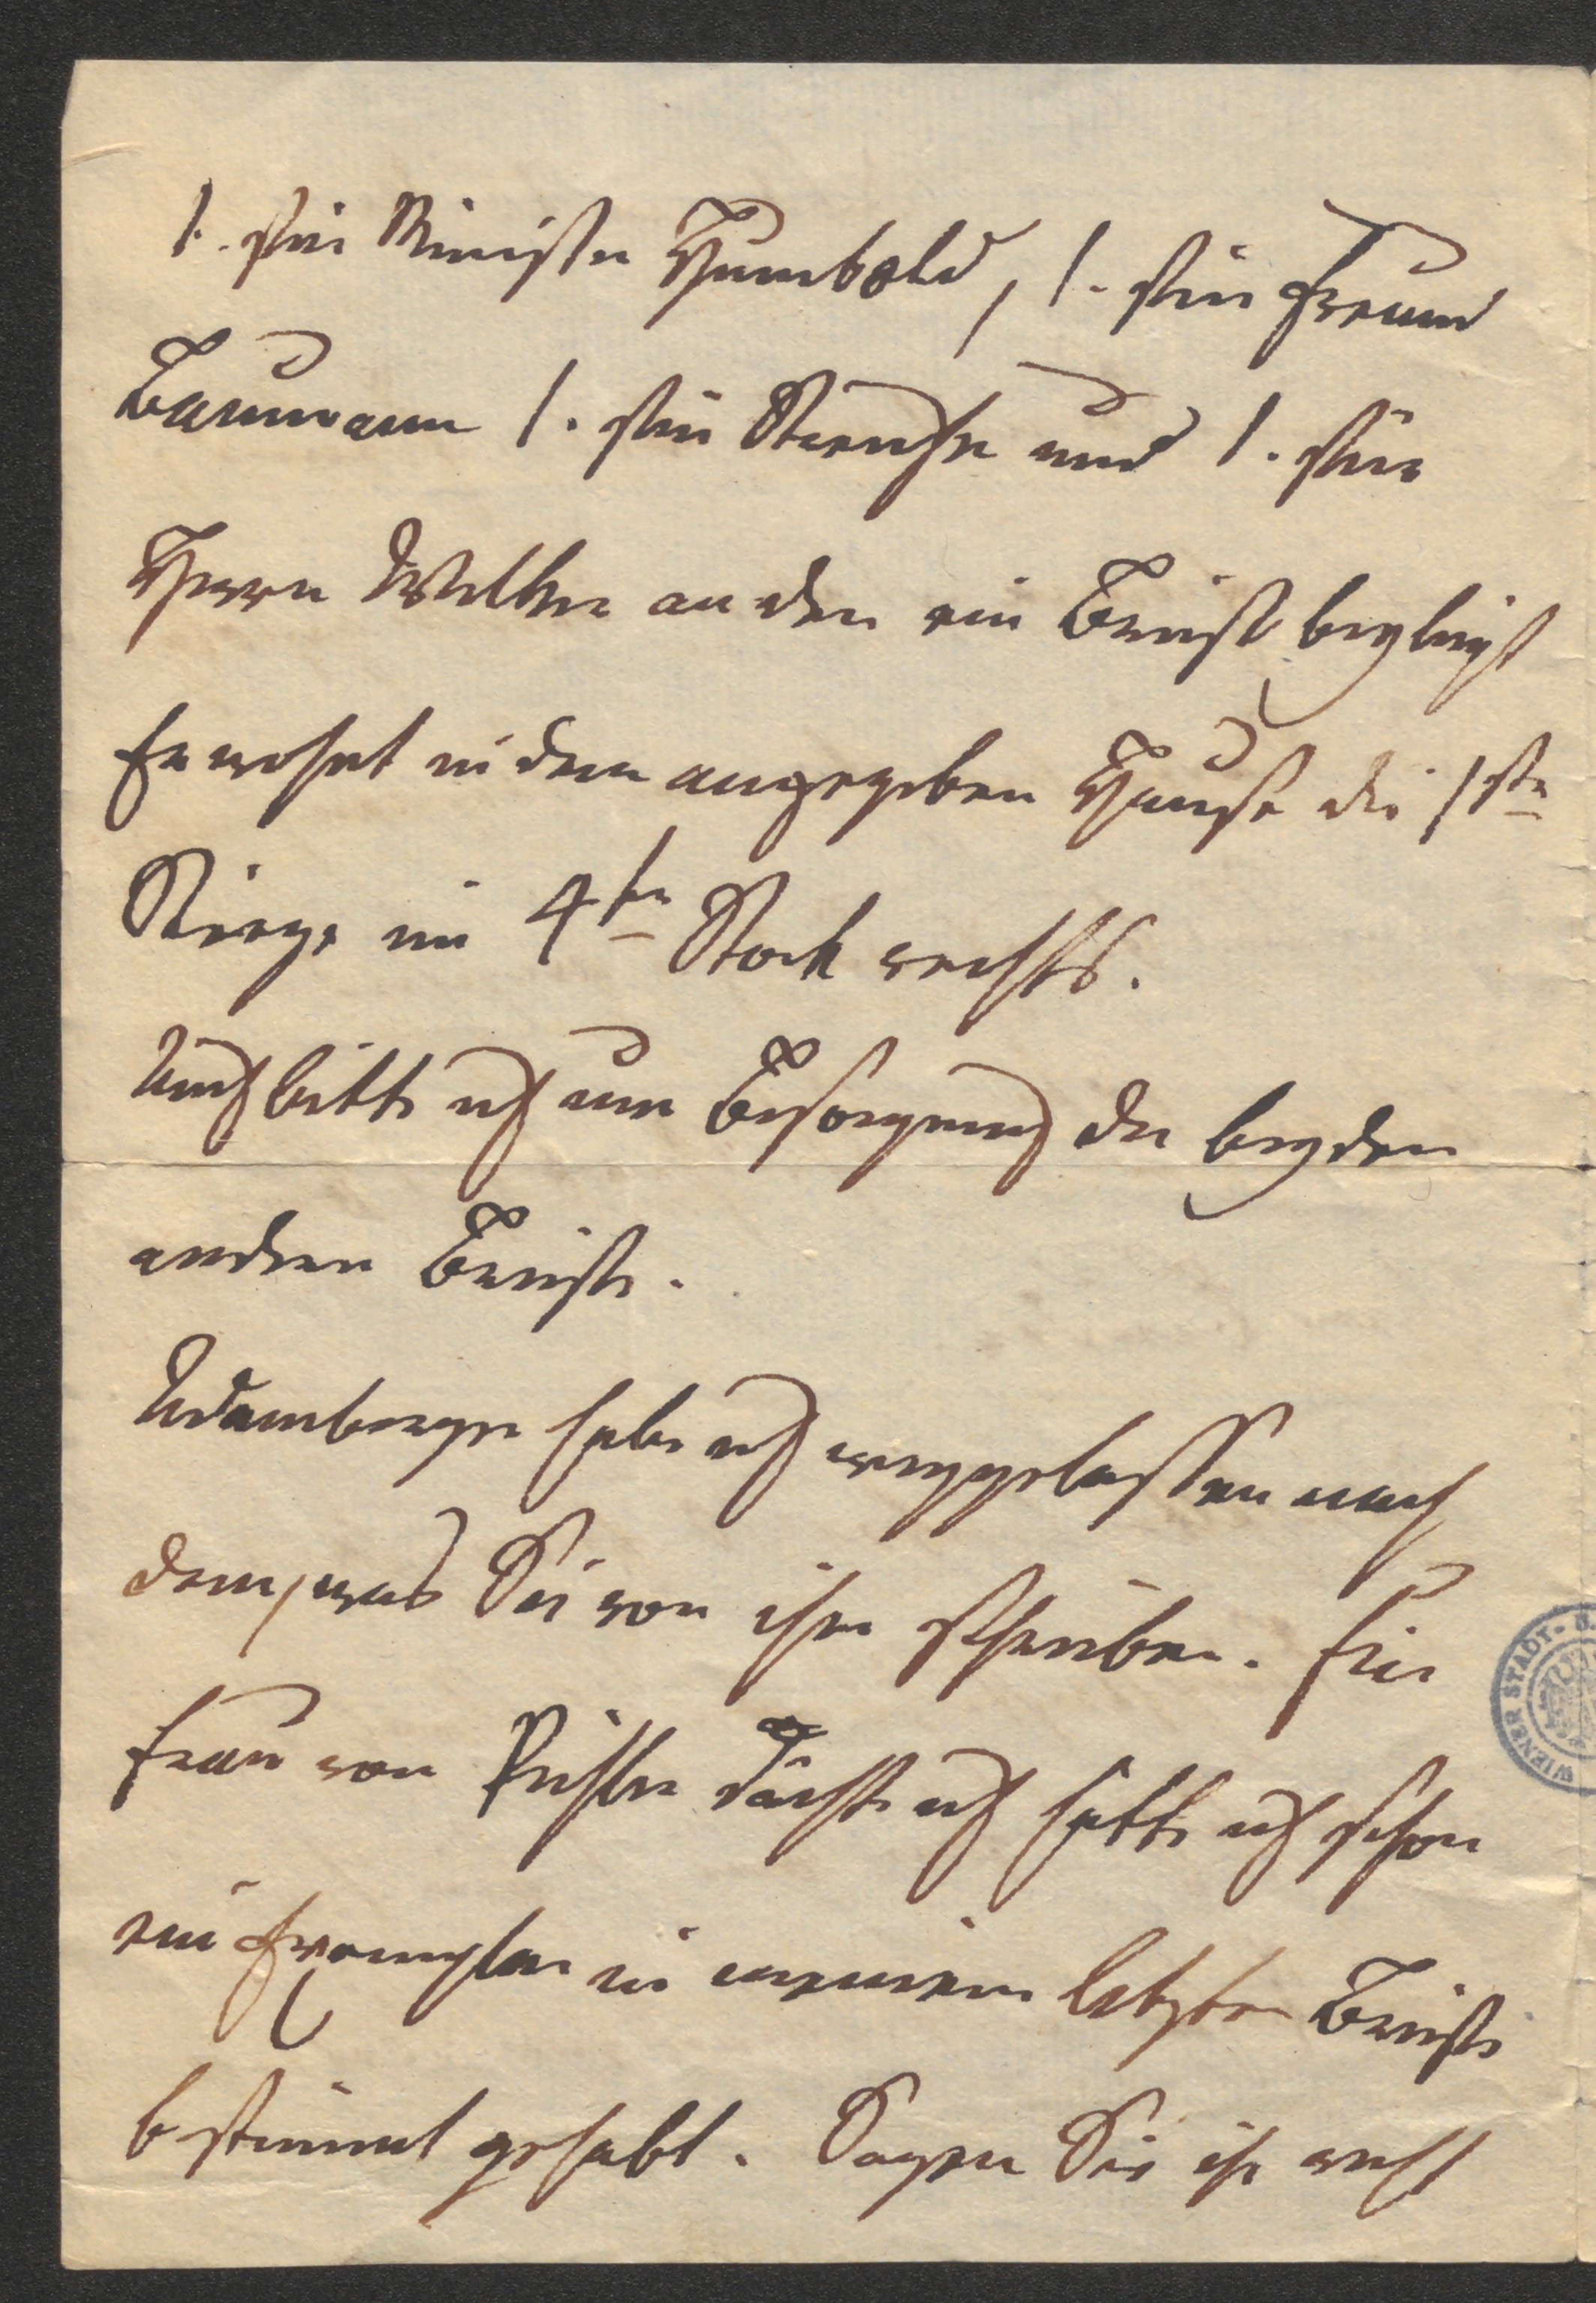 1. für Minister Humbold, 1. für Freund
Baumann 1. für Streicher und 1. für
Herrn Walther an den ein Brief beyliegt
Er wohnt in dem angegeben Hause die 1ste
Stiege im 4ten Stock rechts.
Auch bitte ich um Besorgung der beyden
andren Briefe.
Adamberger habe ich weggelassen nach
dem, was Sie von ihr schreiben. Für
Frau von Pichler dächte ich hätte ich schon
ein Exemplar in meinem letzten Briefe
bestimmt gehabt. Sagen Sie ihr recht
WIENER STADT-